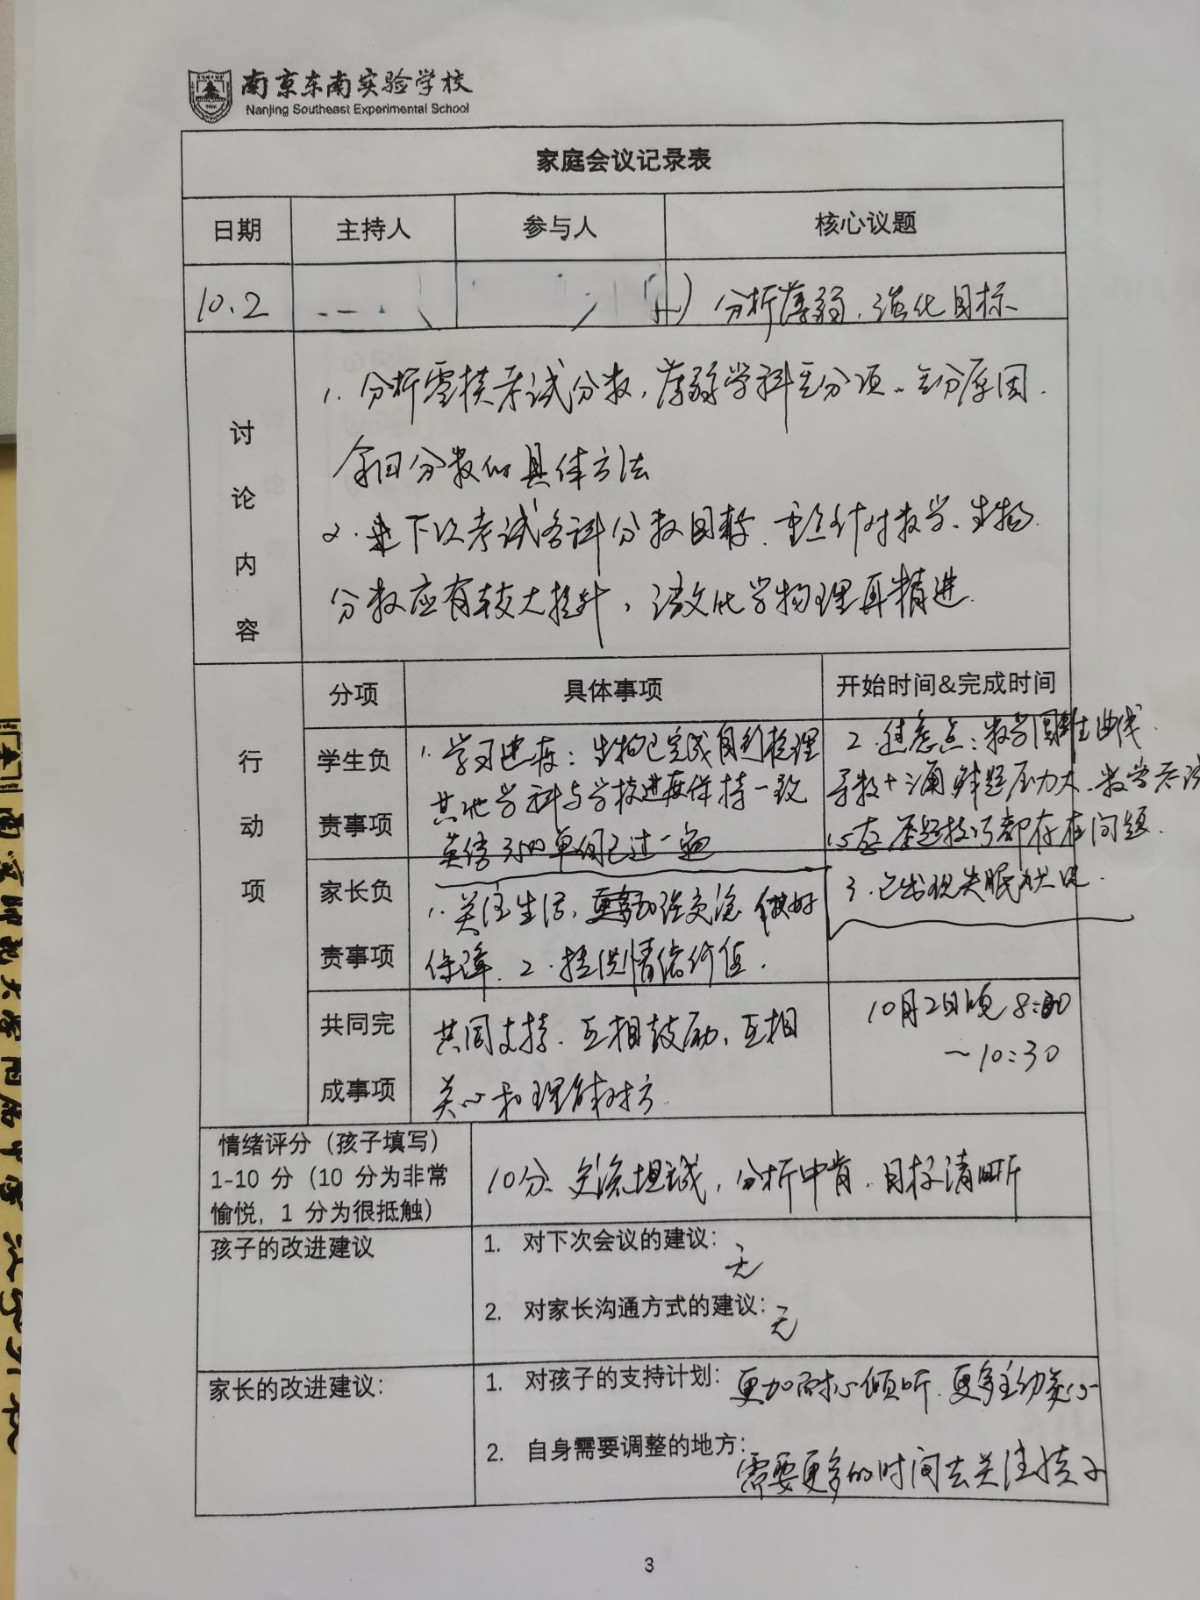 南京东南实验学校
Nanjing Southeast Experimental School
家庭会议记录表
日期 主持人 参与人 核心议题
10.2 分析薄弱、强化目标
讨论内容
1. 分析零模考试分数，薄弱学科丢分项、丢分原因.
拿回分数的具体方法
2. 下次考试各科分数目标. 重点针对数学、生物
分数应有较大提升，语文化学物理再精进.
行动项
分项 具体事项 开始时间&完成时间
学生负责事项
1. 学习进度：生物已完成自我梳理
其他学科与学校进度保持一致
英语3500单词已过一遍
2. 焦虑点：数学圆锥曲线.
导数十二 解题压力大、数学考试
心态 答题技巧都存在问题.
3. 已出现失眠状况.
家长负责事项
1. 关注生活，更多加强交流 做好
保障. 2. 提供情绪价值.
共同完成事项
共同支持. 互相鼓励、互相
关心和理解对方.
10月2日晚 8:00
～10:30
情绪评分（孩子填写）
1-10 分（10 分为非常
愉悦，1 分为很抵触）
10分、交流坦诚，分析中肯. 目标清晰
孩子的改进建议
1. 对下次会议的建议：无
2. 对家长沟通方式的建议：无
家长的改进建议：
1. 对孩子的支持计划：更加耐心倾听. 更多主动关心
2. 自身需要调整的地方：需要更多的时间去关注孩子
3